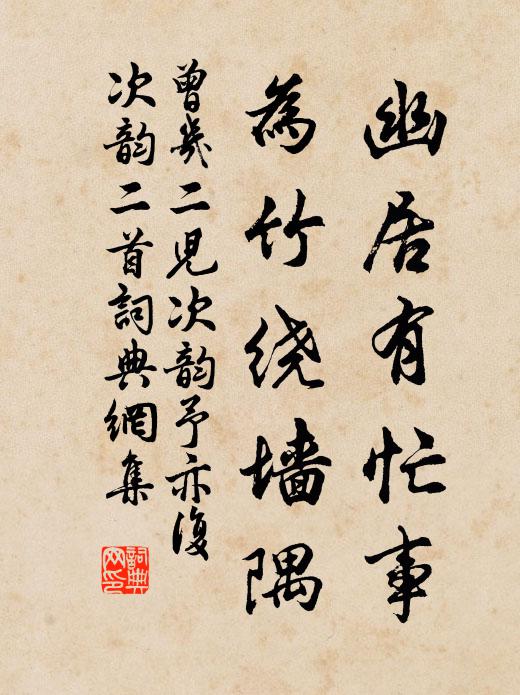 幽居有忙事
為竹绕墙隅
曾幾二児次韵予亦復
次韵二首詞典網集
詞典网印